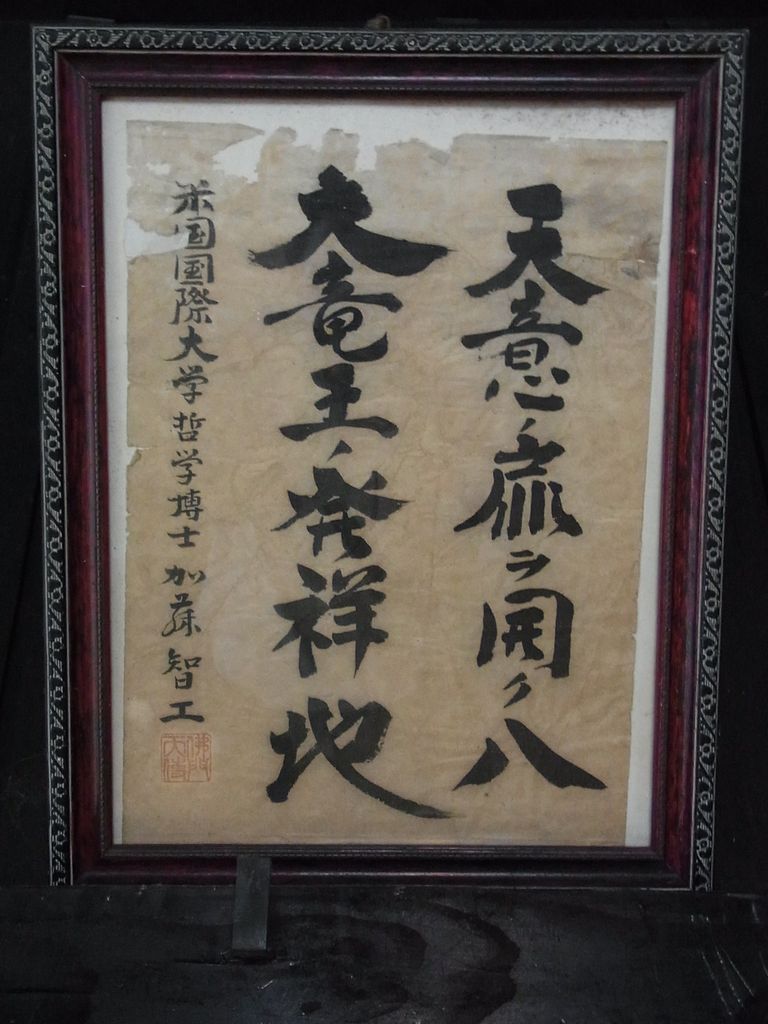 天意ノ扉ヲ開ク八
大竜王ノ発祥地
米国国際大学哲学博士 加藤智工